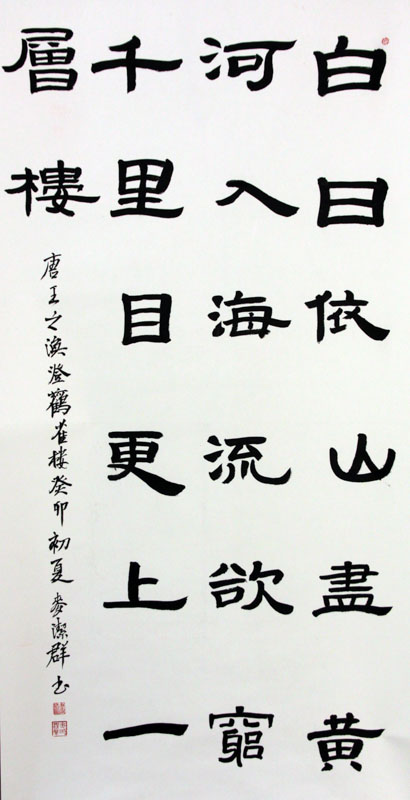 白日依山盡黄
河入海流欲窮
千里目更上一
層樓
唐王之渙澄鸛雀楼癸卯初夏麥潔群书